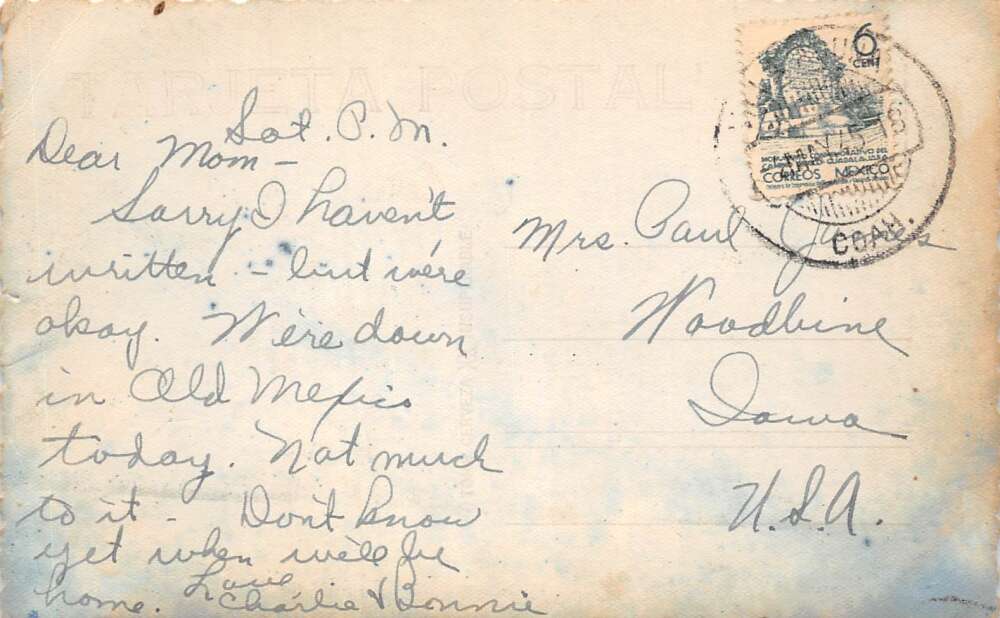 TARJETA POSTAL
Sat. P.M.
Dear Mom -
Sorry I haven't
written - but we're
okay. We're down
in Old Mexico
today. Not much
to it - Don't know
yet when we'll be
home. Love
Charlie & Bonnie
6
CENT
CORREOS MEXICO
MAY 45
18
COAH.
Mrs. Paul
Woodbine
Iowa
U.S.A.